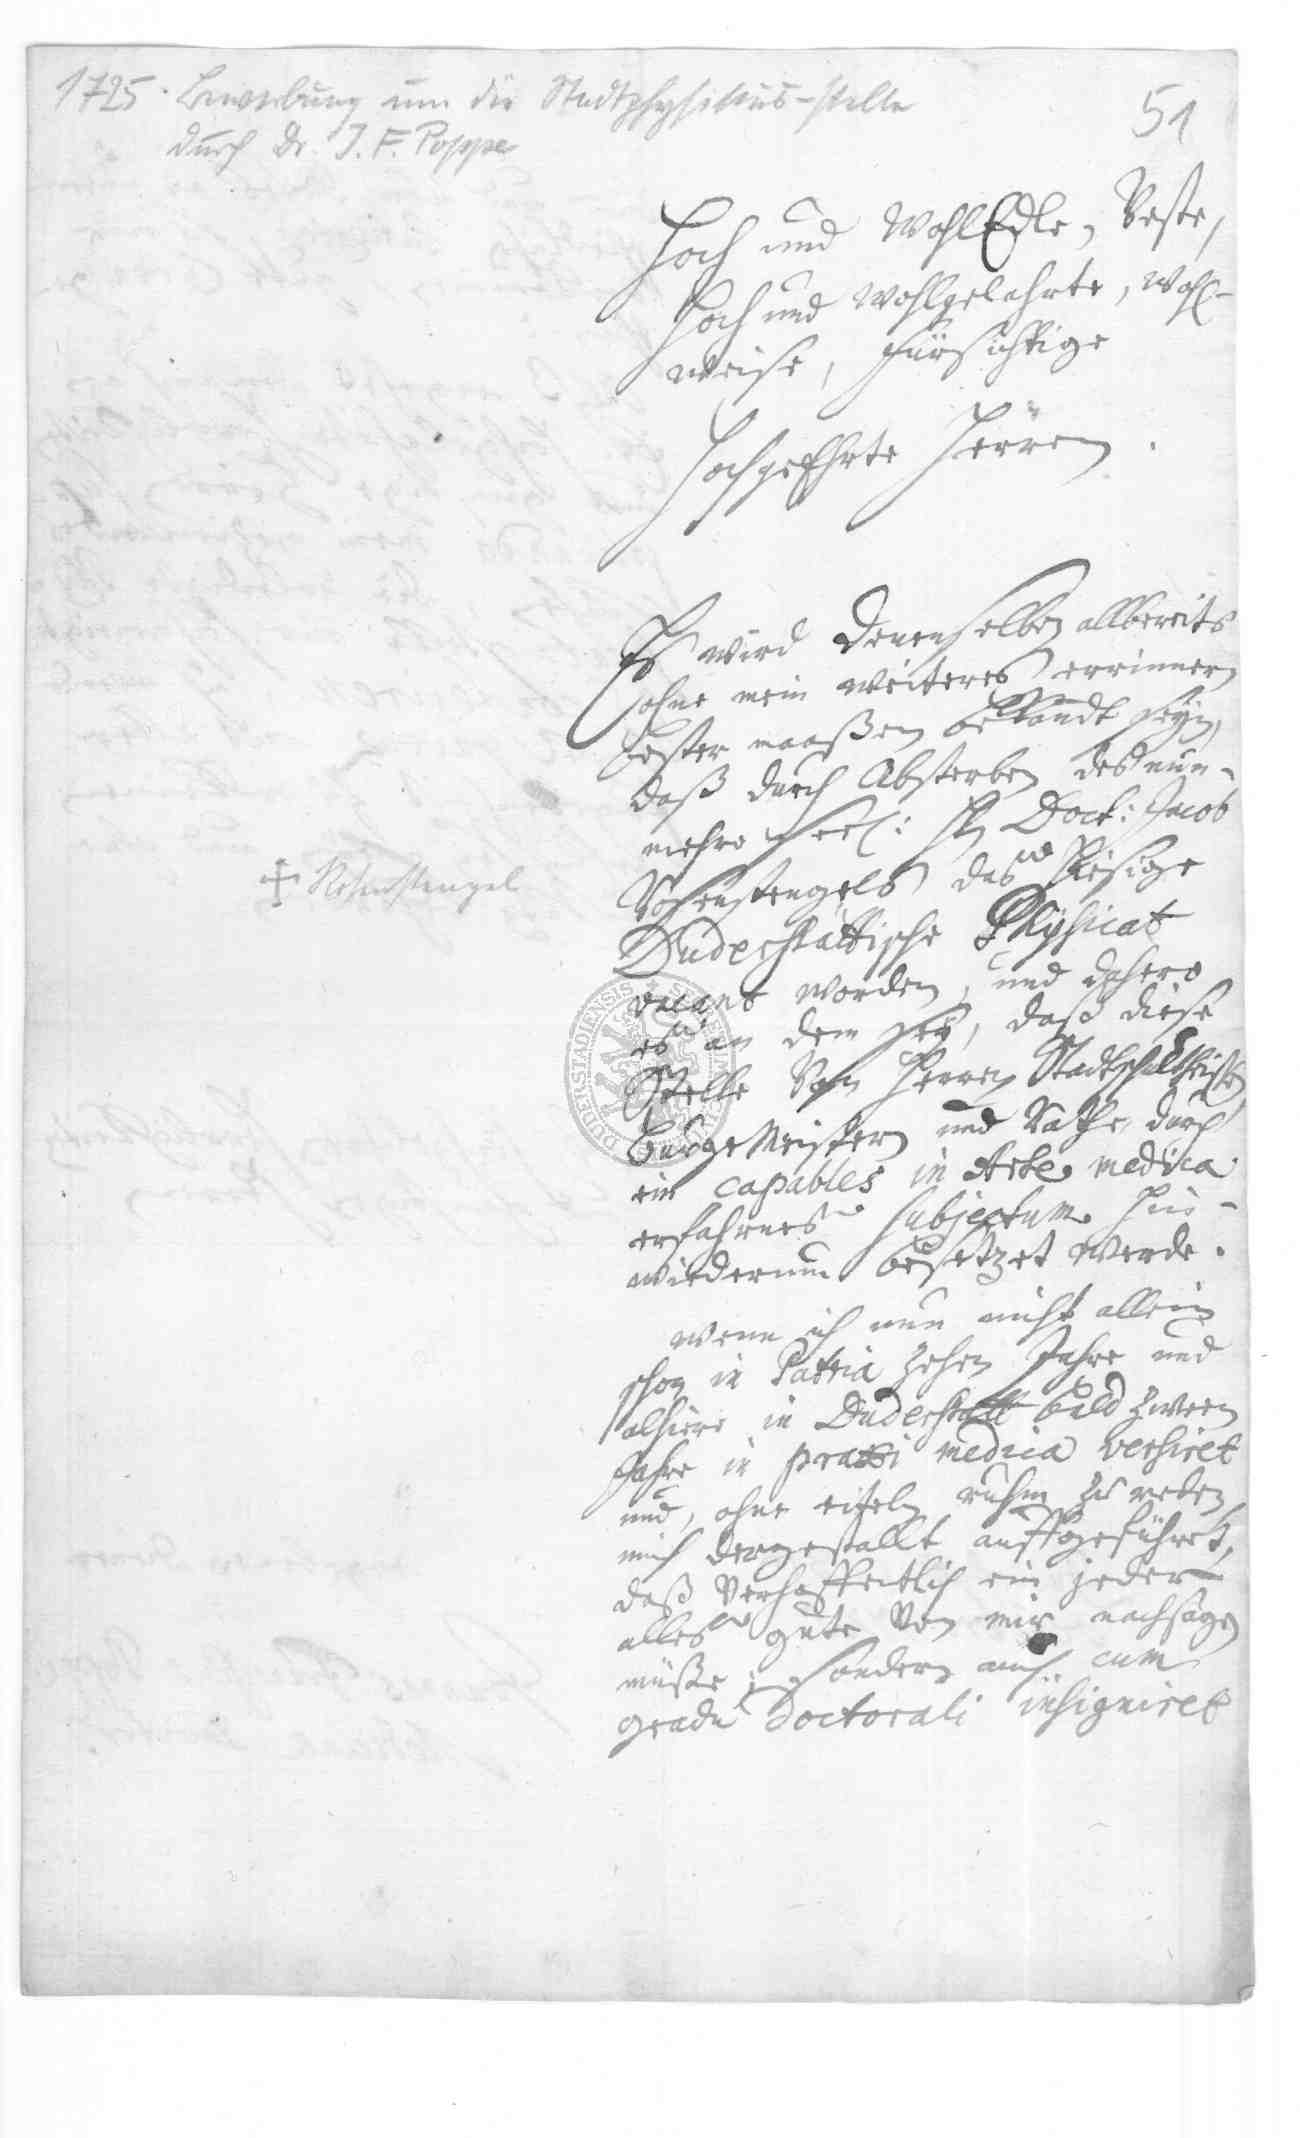 1725. Bewerbung um die Stadtphysikus-stelle
durch Dr. J. F. Poppe
51
Hoch und WohlEdle, Veste,
Hoch und Wohlgelahrte, wohl-
weise, Fürsichtige
Hochgeehrte Herren.
Es wird Denenselben allbereits
ohne mein weiteres errinnern
bester maaßen bekandt seyn,
daß durch Absterben des nun-
mehro Seel: H Doct: Jacob
Rosenstengels das hiesige
✝ Rosenstengel
Duderstättische Physicat
vacant worden, und dahero
es an dem sey, daß diese
Stelle Von Herren Stadtschultheißen
BurgeMeistern und Rathe, durch
ein capables in Arte medica
erfahrnes subjectum hin-
wiederum besetzet werde.
wenn ich nun nicht allein
schon in Patria zehen Jahre und
alhiere in Duderstatt bald zween
Jahre in praxi medica versiret
und, ohne eiteln ruhm zu reden,
mich dergestallt auffgeführet,
daß Verhoffentlich ein jeder
alles gute Von mir nachsagen
müße; sondern auch cum
gradu Doctorali insigniret